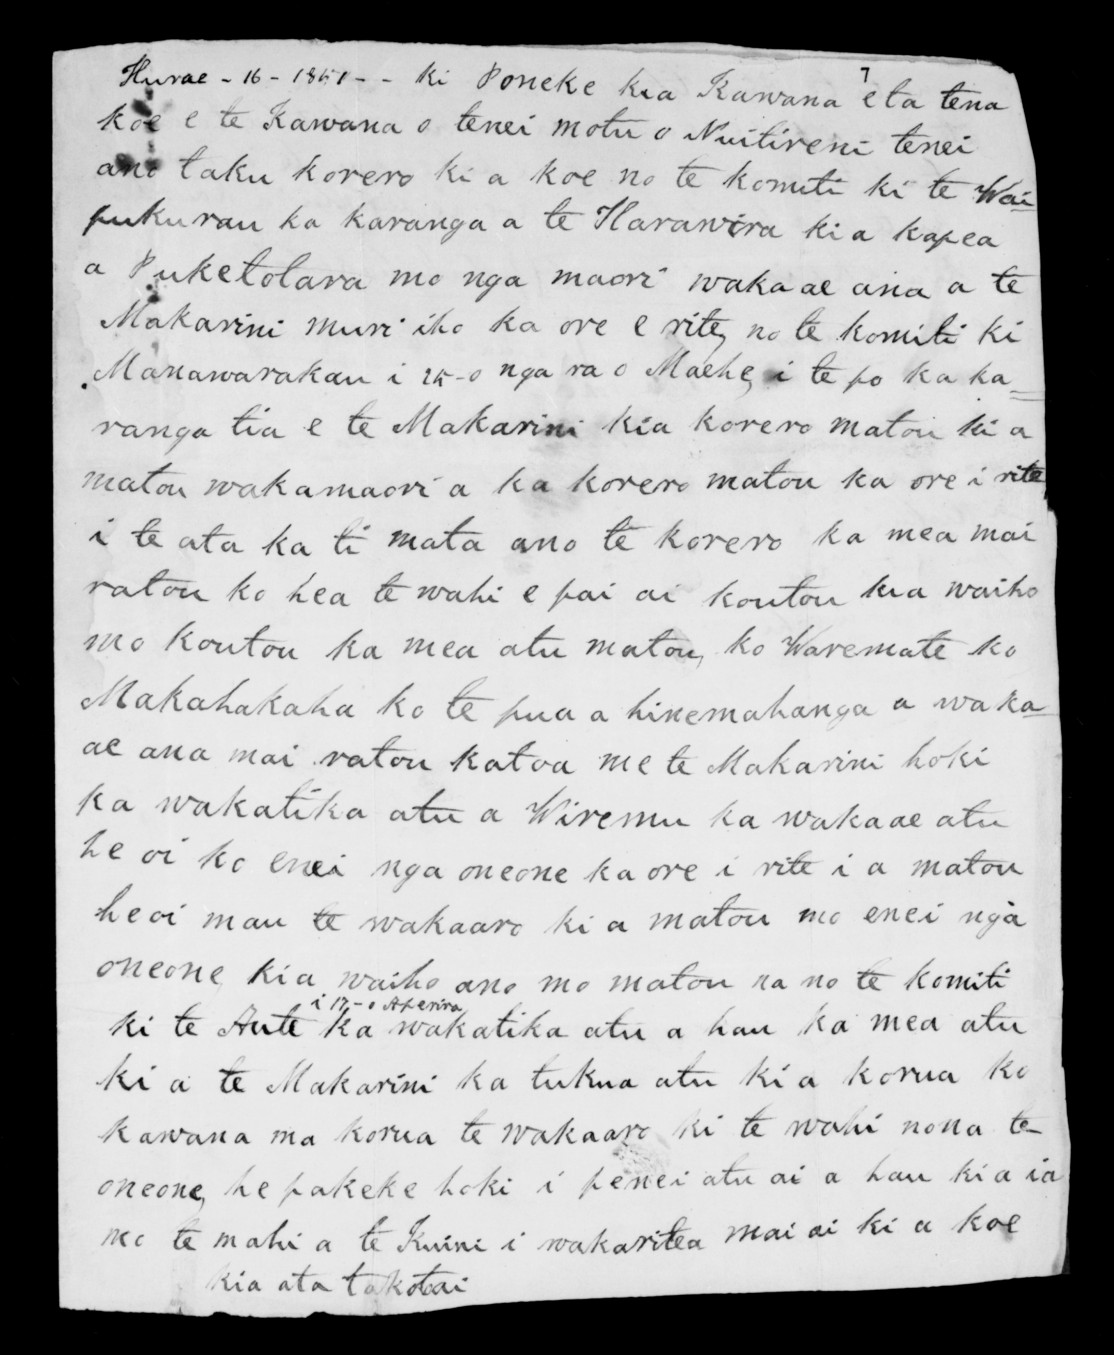 7
Hurae - 16 - 1851 - - ki Poneke kia Kawana eta tena
koe e te Kawana o tenei motu o Nuitireni tenei
ano taku korero ki a koe no te komiti ki te Wai-
pukurau ka karanga a te Harawira kia kapea
a Puketotara mo nga maori waka ae ana a te
Makarini muri iho ka ore e rite, no te komiti ki
Manawarakau i 25-o nga ra o Maehe, i te po ka ka=
ranga tia e te Makarini kia korero matou ki a
matou wakamaori a ka korero matou ka ore i rite
i te ata ka ti mata ano te korero ka mea mai
ratou ko hea te wahi e pai ai koutou kia waiho
mo koutou ka mea atu matou, ko Waremate ko
Makahakaha ko te pua a hinemahanga a waka-
ae ana mai ratou katoa me te Makarini hoki
ka wakatika atu a Wiremu ka wakaae atu
he oi ko enei nga oneone ka ore i rite i a matou
heoi mau te wakaaro ki a matou mo enei nga
oneone, kia waiho ano mo matou na no te komiti
i 17-o Aperira
ki te Aute ka wakatika atu a hau ka mea atu
ki a te Makarini ka tukua atu ki a korua ko
kawana ma korua te wakaaro ki te wahi nona te
oneone, he pakeke hoki i penei atu ai a hau ki a ia
mo te mahi a te Kuini i wakaritea mai ai ki a koe
kia ata takotai